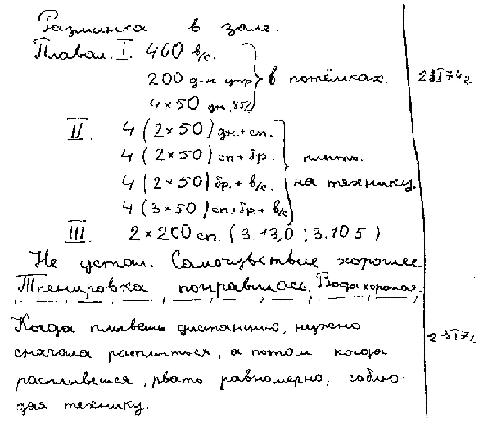 Разминка в зале.
Плавал. I. 400 в/с.
200 д-н упр } в потёмках. 2
4×50 дн.
II. 4 (2×50) дн.+сп.
4 (2×50) сп+бр. } плыть
4 (2×50) бр.+в/с. на технику.
4 (3×50) сп+бр+в/с
III. 2×200 сп. (3.13,0; 3.10 5)
Не устал. Самочувствие хорошее.
Тренировка понравилась. Вода хорошая.
Когда плывёшь дистанцию, нужно
сначала расплыться, а потом когда 2
расплывёшся, рвать равномерно, соблю-
дая технику.